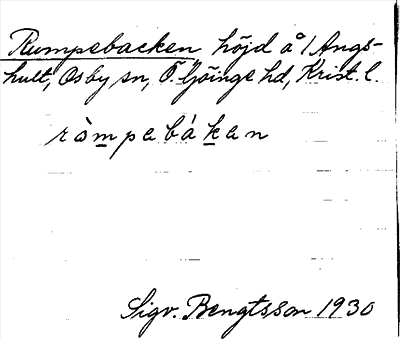 Rumpebacken höjd å 1 Ängs-
hult, Osby sn, Ö. Göinge hd, Krist. l.
ròmpebákən
Sigv. Bengtsson 1930